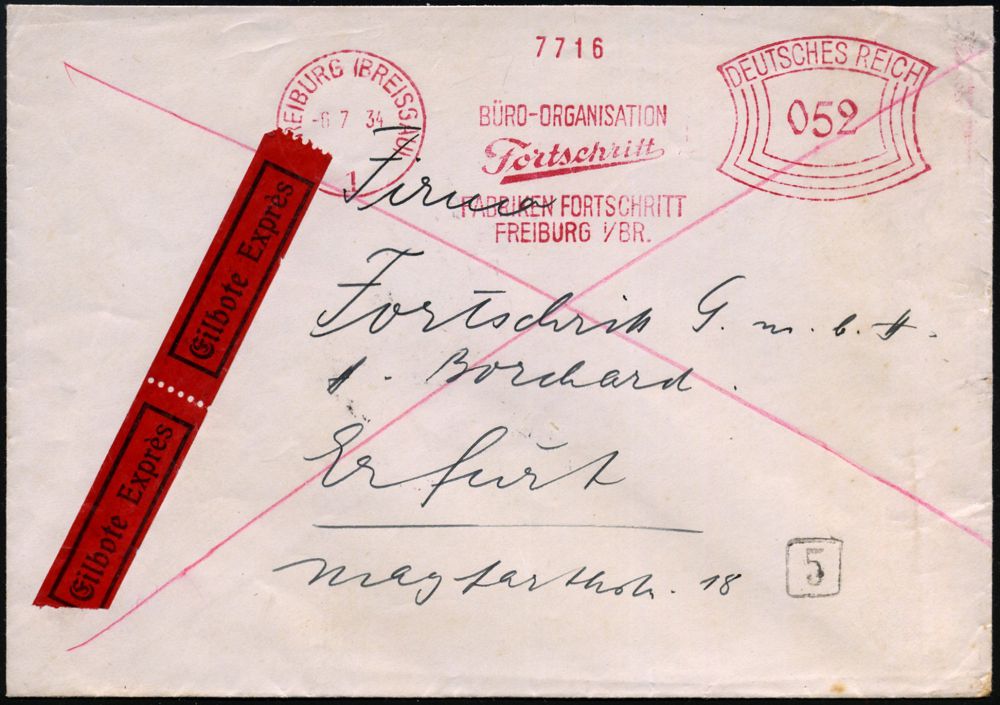 7716
FREIBURG (BREISGAU)
-6 7 34
1
BÜRO-ORGANISATION
Fortschritt
FABRIKEN FORTSCHRITT
FREIBURG i/BR.
DEUTSCHES REICH
052
Eilbote Exprès
Eilbote Exprès
Firma
Fortschritt G.m.b.H.
Borchard.
Erfurt
18
5